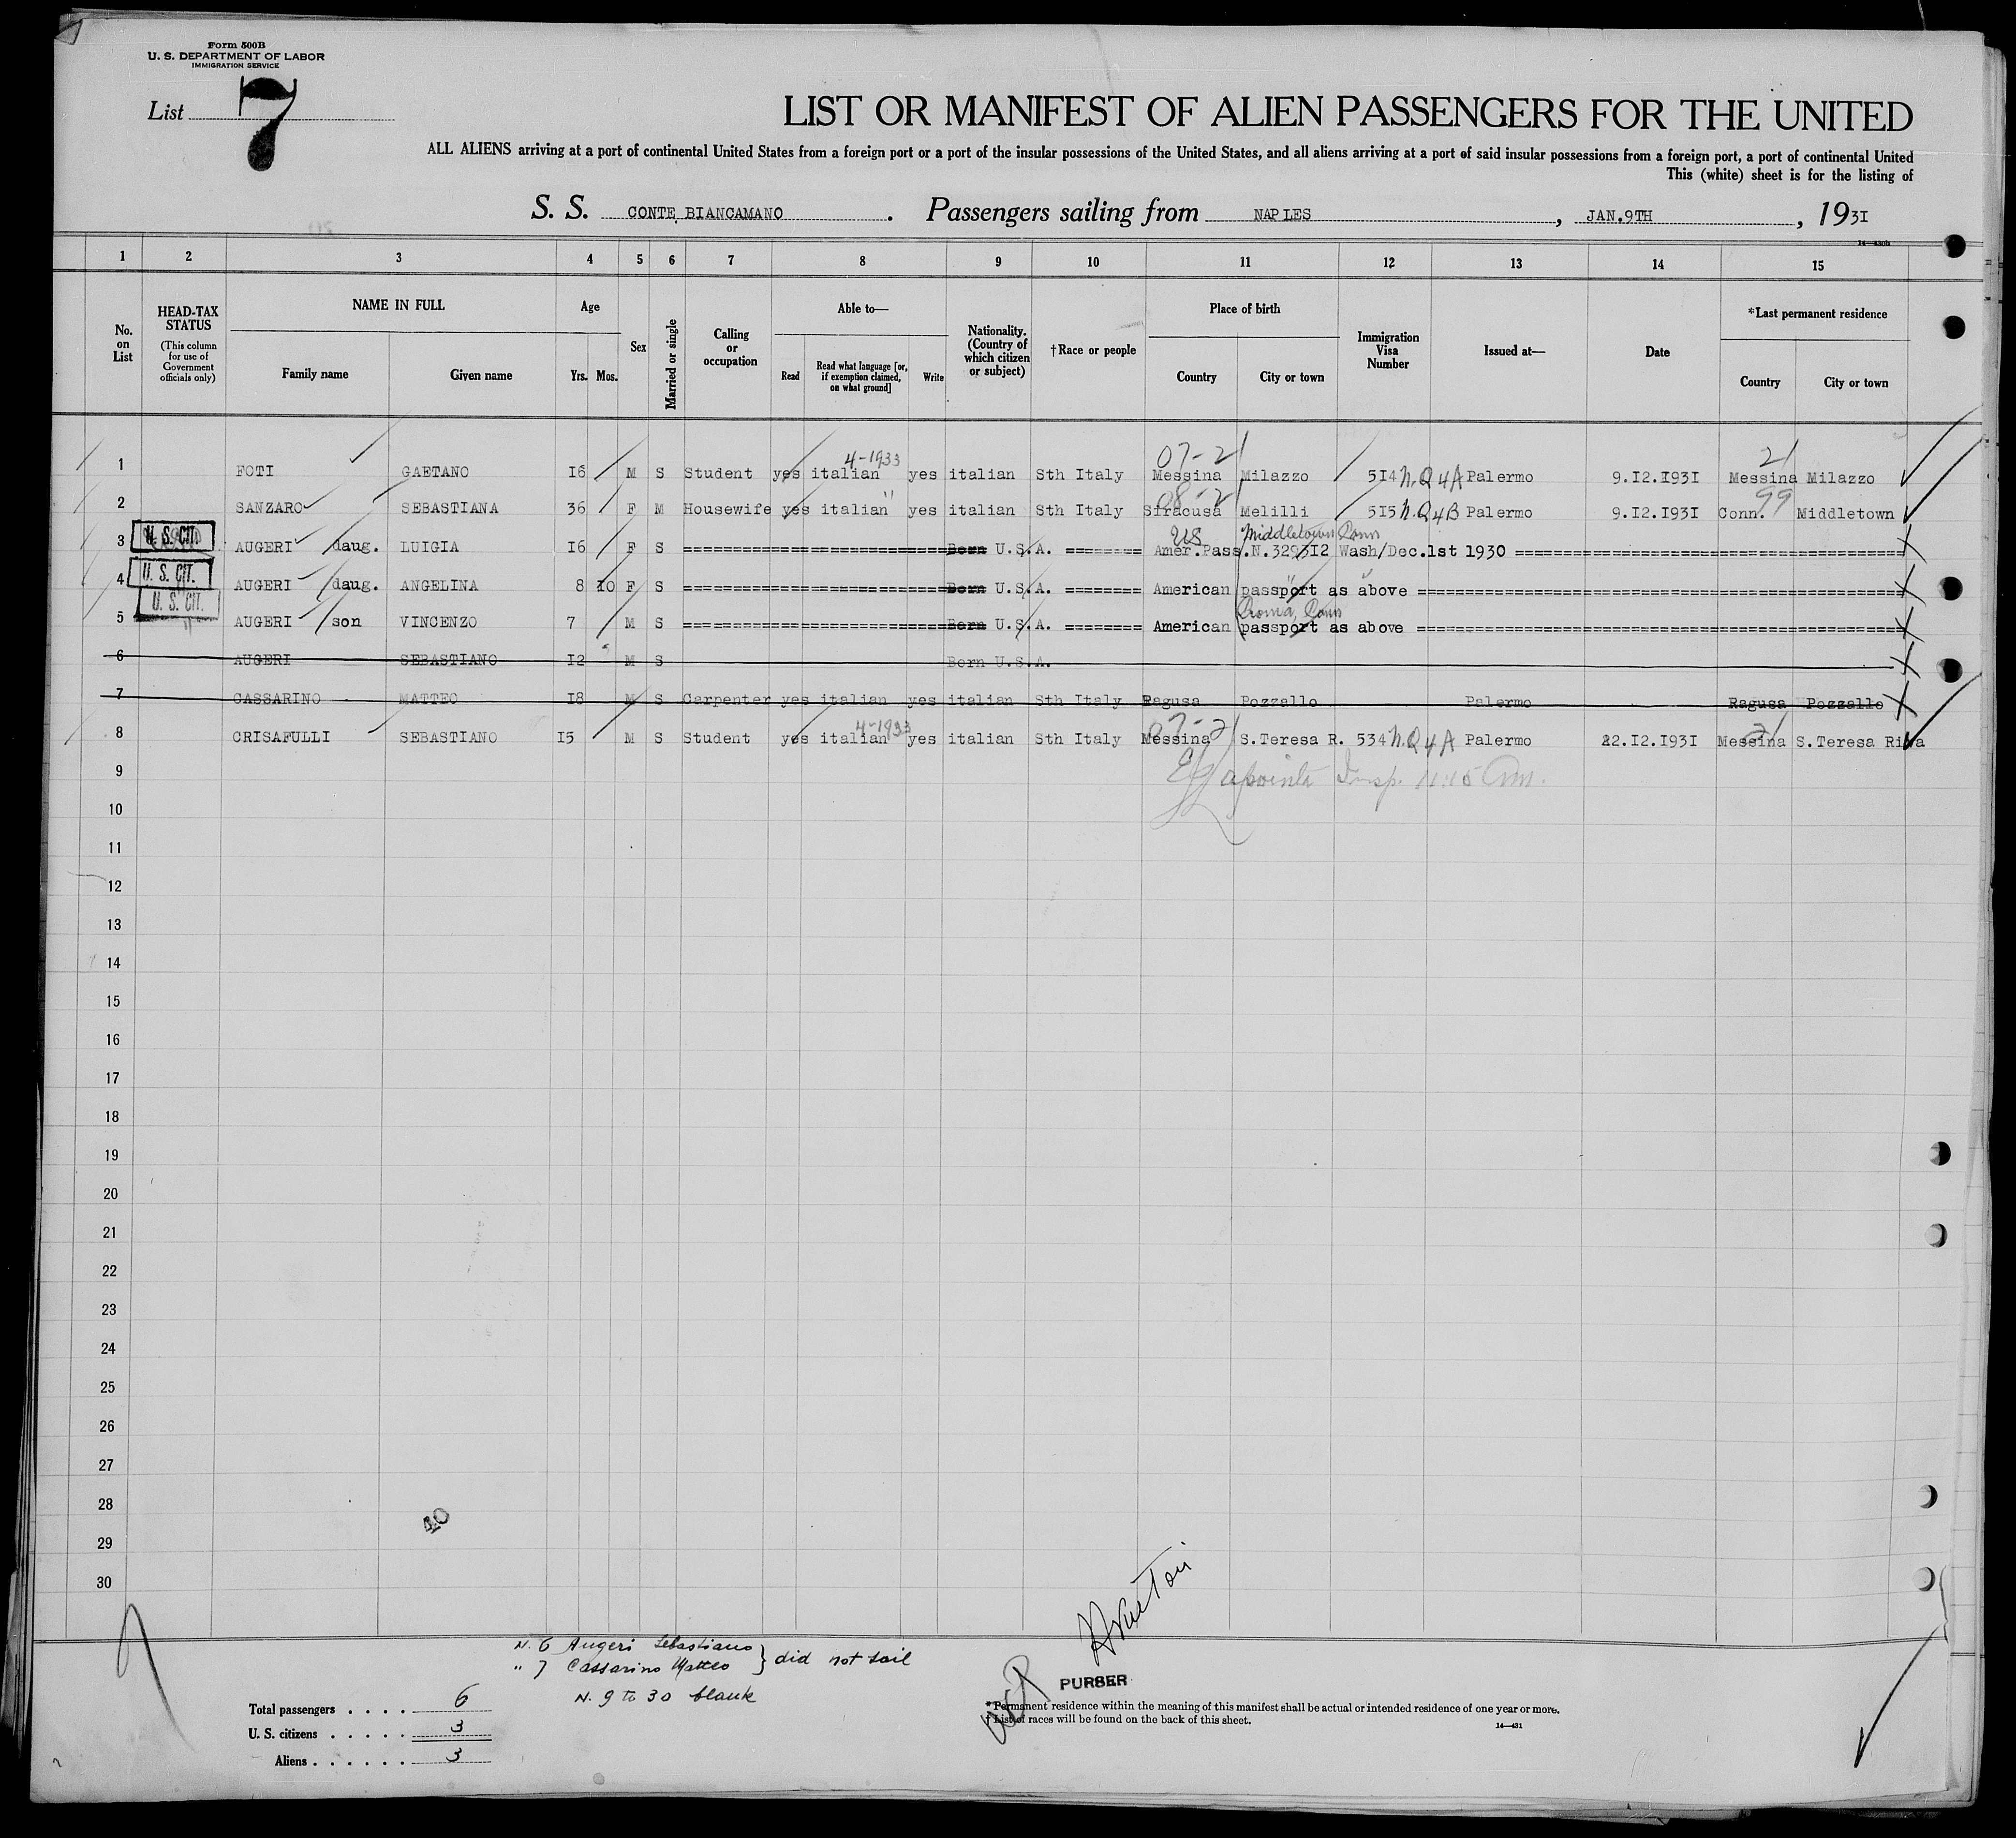 Form 500B
U. S. DEPARTMENT OF LABOR
IMMIGRATION SERVICE
List 7
LIST OR MANIFEST OF ALIEN PASSENGERS FOR THE UNITED
ALL ALIENS arriving at a port of continental United States from a foreign port or a port of the insular possessions of the United States, and all aliens arriving at a port of said insular possessions from a foreign port, a port of continental United
This (white) sheet is for the listing of
S. S. CONTE BIANCAMANO. Passengers sailing from NAPLES, JAN.9TH, 1931
1 2 3 4 5 6 7 8 9 10 11 12 13 14 15
No. on List
HEAD-TAX STATUS
(This column for use of Government officials only)
NAME IN FULL
Family name Given name
Age
Yrs. Mos.
Sex
Married or single
Calling or occupation
Able to—
Read Read what language [or, if exemption claimed, on what ground] Write
Nationality. (Country of which citizen or subject)
†Race or people
Place of birth
Country City or town
Immigration Visa Number
Issued at—
Date
*Last permanent residence
Country City or town
4-1933 07-2 21
1 FOTI GAETANO 16 M S Student yes italian yes italian Sth Italy Messina Milazzo 514 N.Q 4A Palermo 9.I2.I931 Messina Milazzo
" 08-2 99
2 SANZARO SEBASTIANA 36 F M Housewife yes italian yes italian Sth Italy Siracusa Melilli 5I5 N.Q 4B Palermo 9.I2.I931 Conn. Middletown
U. S. CIT. US Middletown Conn
3 AUGERI daug. LUIGIA I6 F S Born U.S.A. Amer.Pass.N.329312 Wash/Dec.1st 1930
U. S. CIT. "
4 AUGERI daug. ANGELINA 8 10 F S Born U.S.A. American passport as above
U. S. CIT. Conn
5 AUGERI son VINCENZO 7 M S Born U.S.A. American passport as above
6 AUGERI SEBASTIANO I2 M S Born U.S.A.
7 CASSARINO MATTEO I8 M S Carpenter yes italian yes italian Sth Italy Ragusa Pozzallo Palermo Ragusa Pozzallo
4-1933 07-2 21
8 CRISAFULLI SEBASTIANO I5 M S Student yes italian yes italian Sth Italy Messina S.Teresa R. 534 N.Q 4A Palermo 22.I2.I931 Messina S.Teresa Riva
9 Insp. 11:15 Am.
10
11
12
13
14
15
16
17
18
19
20
21
22
23
24
25
26
27
28
40
29
30
N. 6 Augeri Sebastiano
" 7 Cassarino Matteo } did not sail
N. 9 to 30 blank
PURSER
Total passengers . . . . 6
U. S. citizens . . . . . 3
Aliens . . . . . . 3
*Permanent residence within the meaning of this manifest shall be actual or intended residence of one year or more.
† List of races will be found on the back of this sheet.
14—431